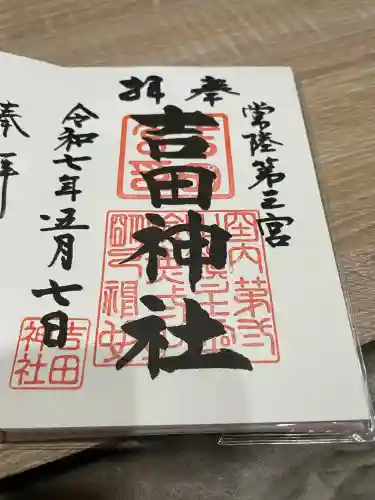 奉拝
常陸第三宮
吉田神社
令和七年五月七日
吉田
神社
奉拝